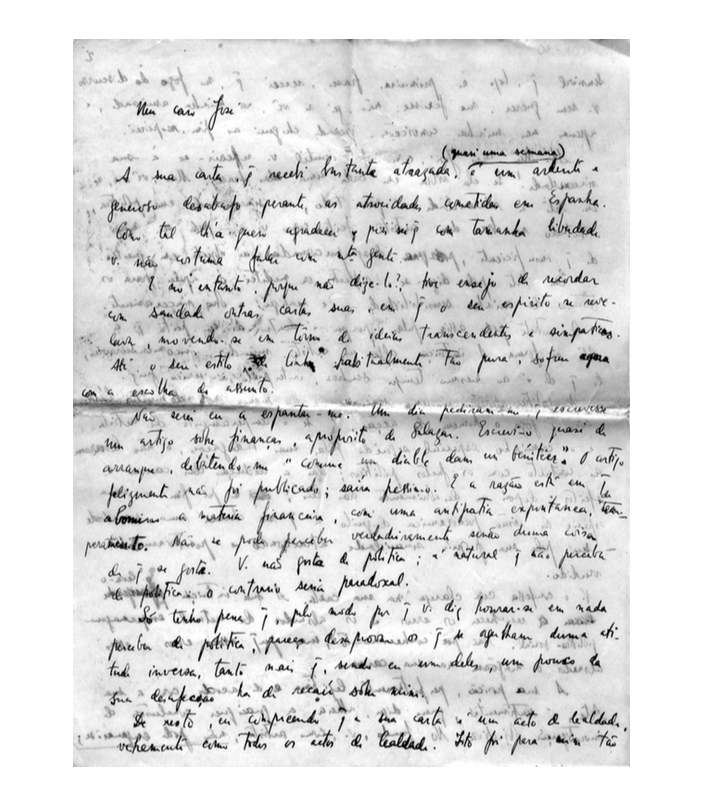 Meu caro José
(quasi uma semana)
A sua carta, q̃ recebi bastante atrazada, é um ardente e
generoso desabafo perante as atrocidades cometidas em Espanha.
Como tal lh'a quero agradecer, pois com tamanha liberdade
v. não costuma falar com mta gente.
E no entanto, porque não dize-lo?, tive ensejo de recordar
com saudade outras cartas suas, em q̃ o seu espirito se reve-
lava, movendo-se em torno de ideias transcendentes e simpaticas.
Até o seu estilo de linha habitualmente tão pura, sofreu agora
com a escolha do assunto.
Não serei eu a espantar-me. Um dia pediram-me q̃ escrevesse
um artigo sobre finanças, aproposito de Salazar. Escrevi-o quasi de
arranque, debatendo-me "comme un diable dans un bénitier". O artigo
felizmente não foi publicado; saíra pessimo. E a razão está em q̃ eu
abomino a materia financeira, com uma antipatia espontanea, tem-
peramento. Não se pode perceber verdadeiramente senão duma coisa
de q̃ se gosta. V. não gosta de politica; é natural q̃ não perceba
de politica. o contrario seria paradoxal.
Só tenho pena q̃, pelo modo por q̃ v. diz honrar-se em nada
perceber de politica, pareça desprezar os q̃ se orgulham duma ati-
tude inversa, tanto mais q̃, sendo eu um deles, um pouco da
sua desafeição ha de recair sobre mim.
De resto, eu compreendo q̃ a sua carta é um acto de lealdade,
vehemente como todos os actos de lealdade. Isto foi para mim tão